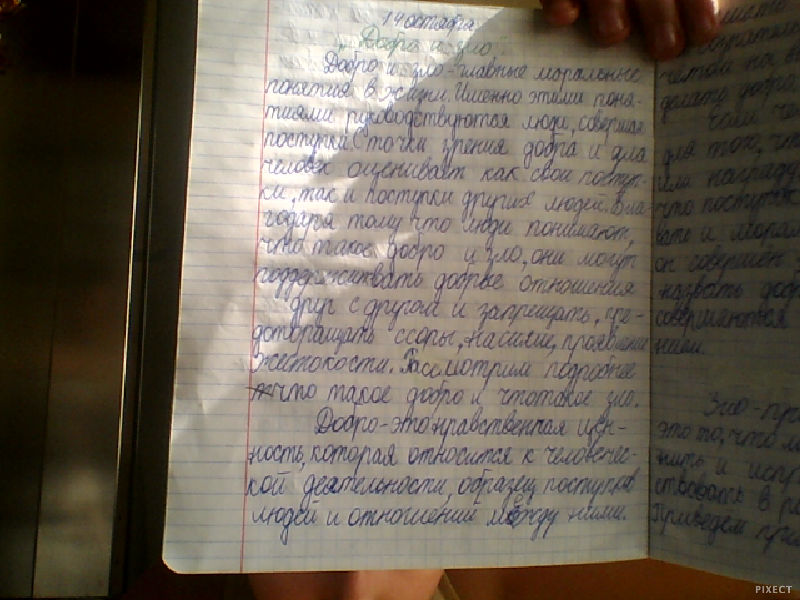 14 октября
"Добро и зло"
Добро и зло - главные моральные
понятия в жизни. Именно этими поня-
тиями руководствуются люди, совершая
поступки. С точки зрения добра и зла
человек оценивает как свои поступ-
ки, так и поступки других людей. Бла-
годаря тому что люди понимают,
что такое добро и зло, они могут
поддерживать добрые отношения
друг с другом и запрещать, пре-
дотвращать ссоры, насилие, проявление
жестокости. Рассмотрим подробнее
что такое добро и что такое зло.
Добро - это нравственная цен-
ность, которая относится к человечес-
кой деятельности, образец поступков
людей и отношений между ними.
чем на
делать добро.
для того, что
или награду
что поступок
вать и мораль
он совершён
назвать добр
совершаются
ними.
Зло - про
это то, что
нить и испр
ствовать в
Приведём при
PIXECT